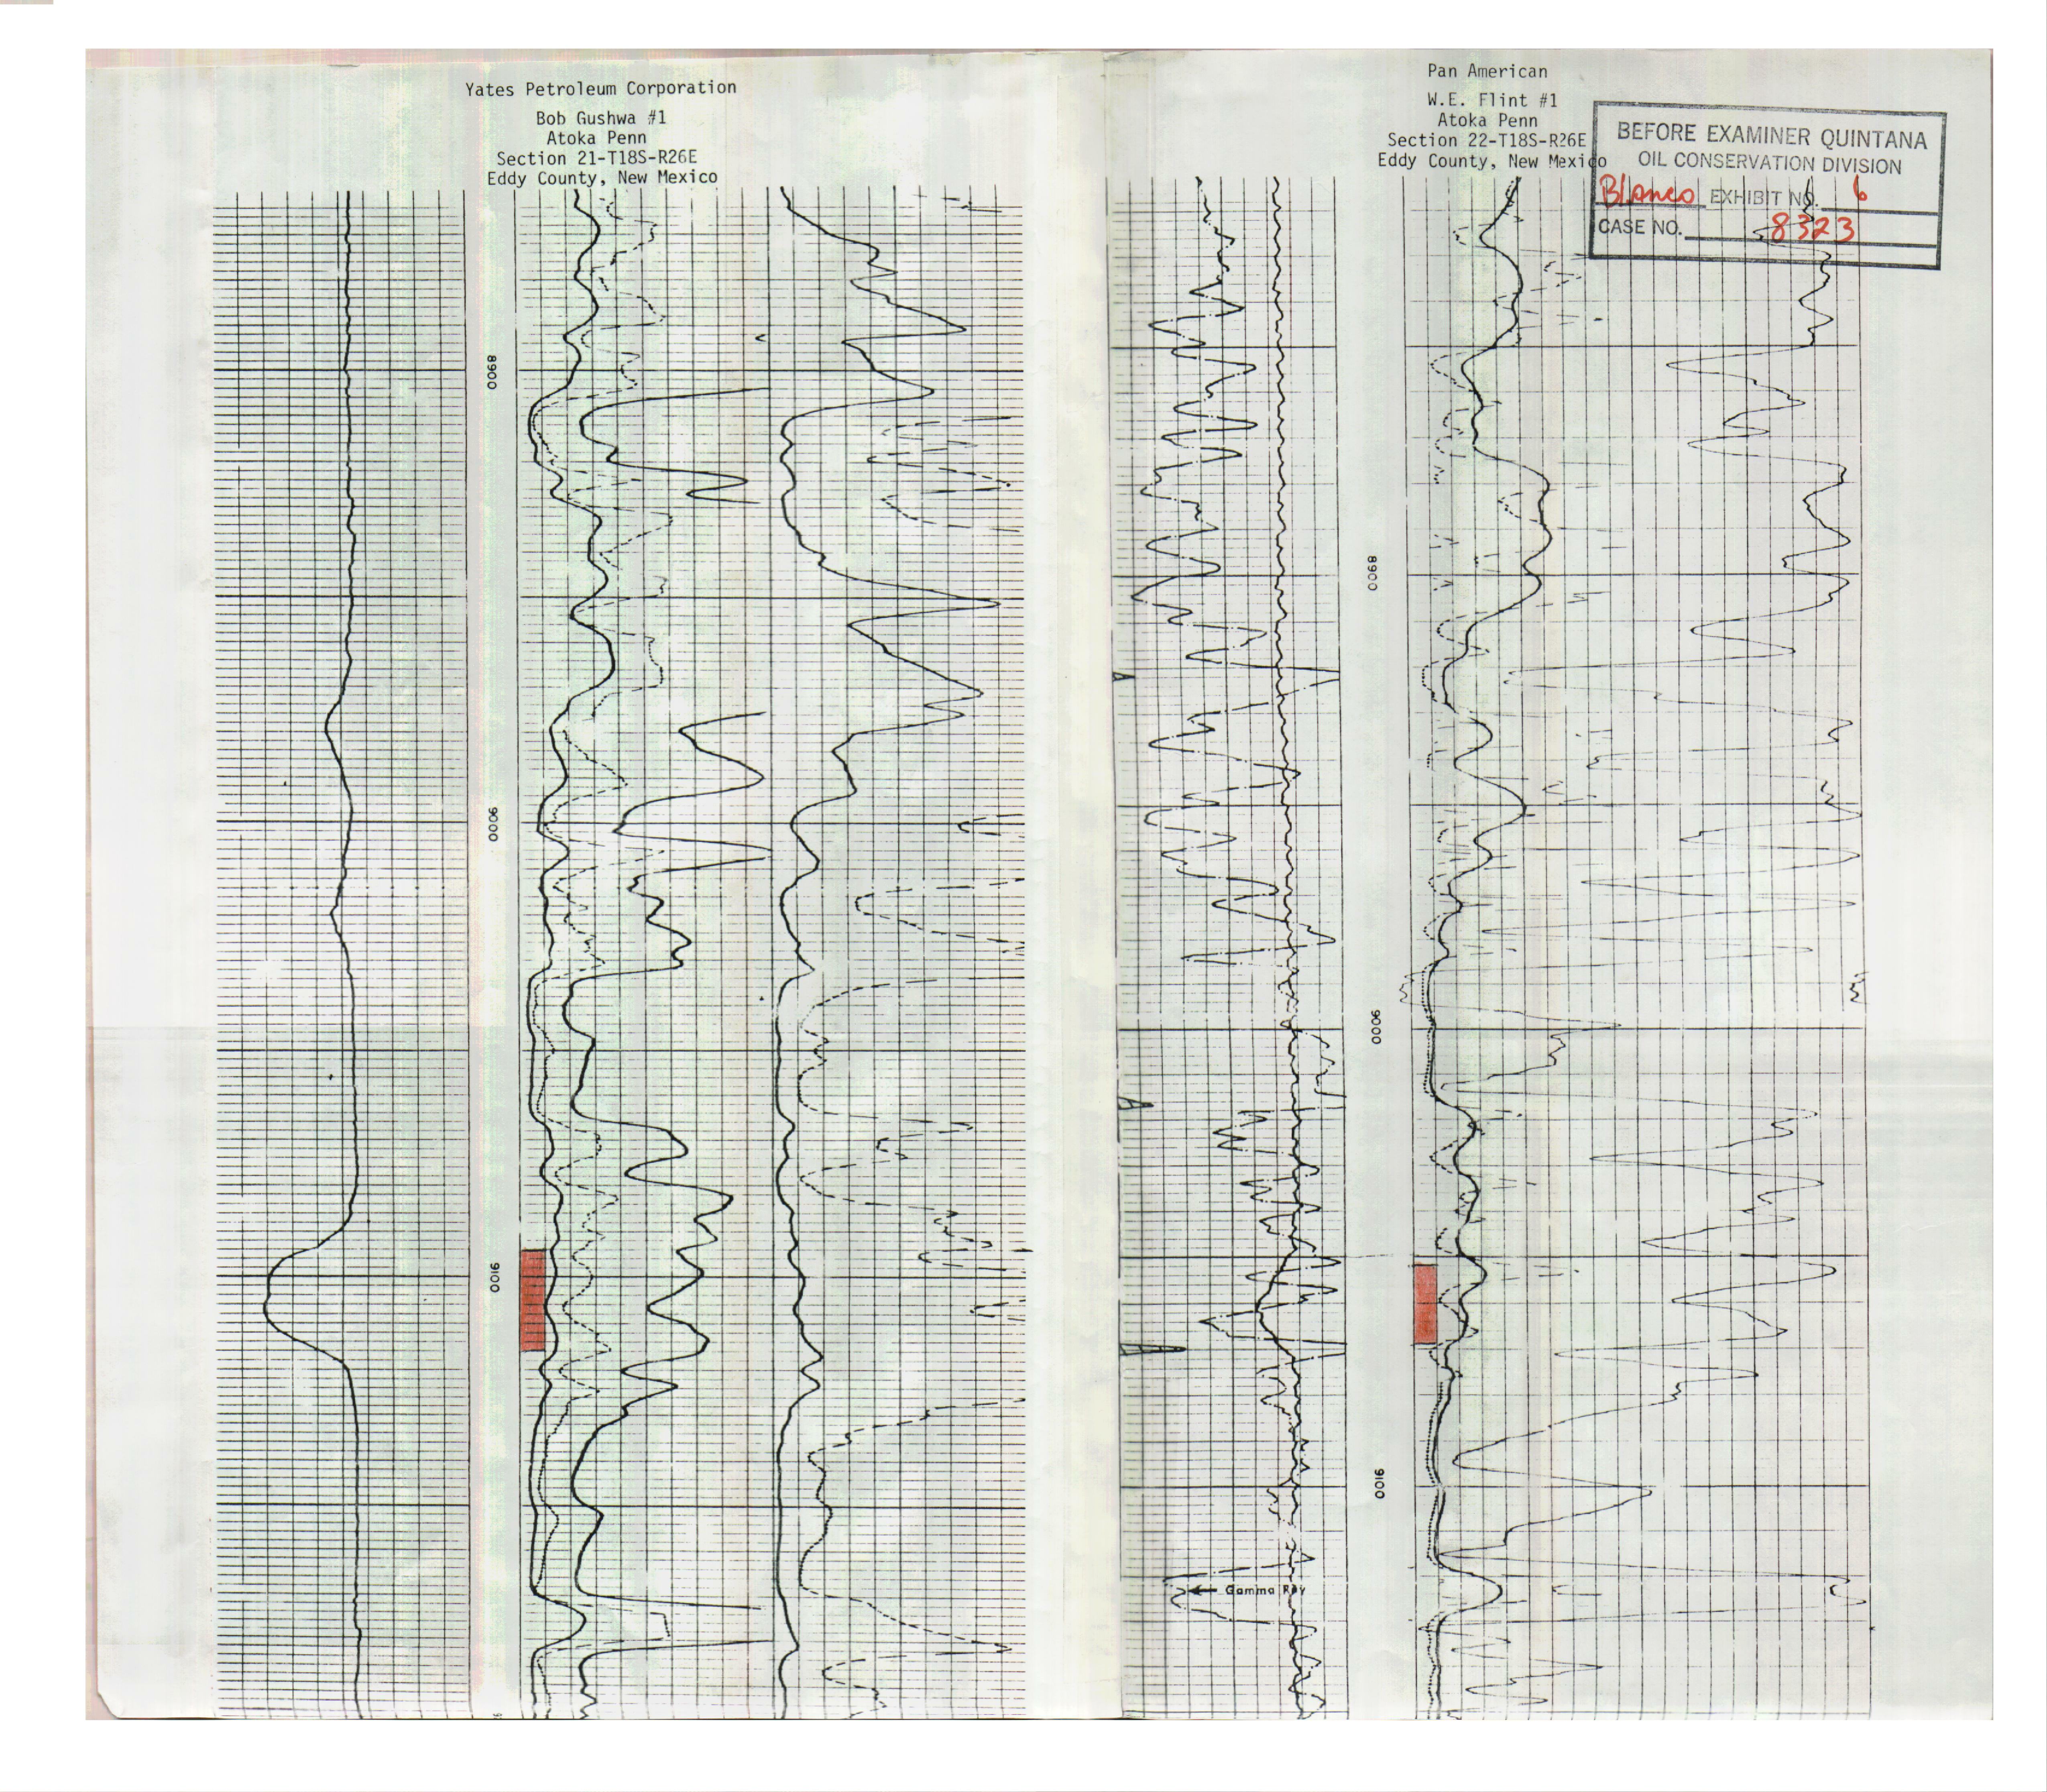 Yates Petroleum Corporation
Bob Gushwa #1
Atoka Penn
Section 21-T18S-R26E
Eddy County, New Mexico
8900
9000
9100
Pan American
W.E. Flint #1
Atoka Penn
Section 22-T18S-R26E
Eddy County, New Mexico
BEFORE EXAMINER QUINTANA
OIL CONSERVATION DIVISION
Blanco EXHIBIT NO. 6
CASE NO. 8323
8900
9000
9100
Gamma Ray